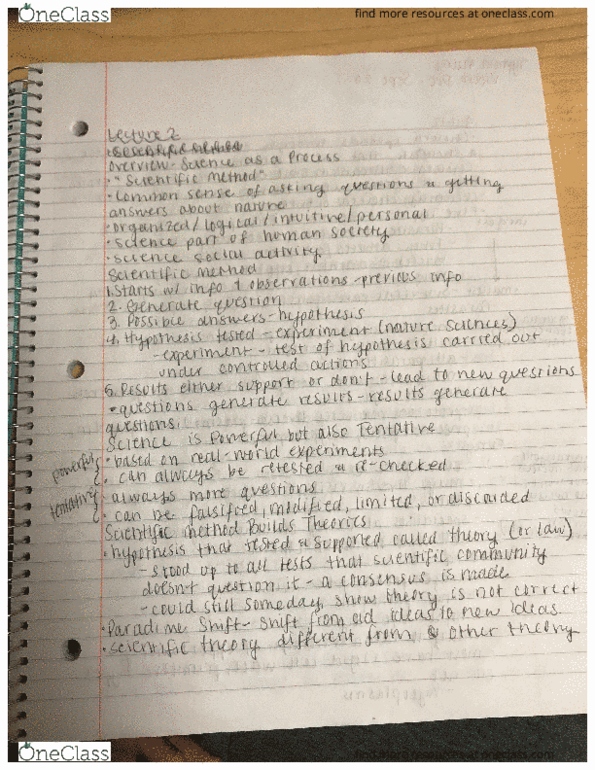 OneClass
find more resources at oneclass.com
Lecture 2
Overview - Science as a Process
• "Scientific Method"
• Common sense of asking questions & getting
answers about nature
• organized / logical / intuitive / personal
• science part of human society
• science social activity
Scientific method
1. Starts w/ info & observations - previous info
2. Generate question
3. Possible answers - hypothesis
4. Hypothesis tested - experiment (nature sciences)
- experiment - test of hypothesis carried out
under controlled actions
5. Results either support or don't - lead to new questions
• questions generate results - results generate
questions
Science is Powerful but also Tentative
powerful
• based on real-world experiments
• can always be retested & re-checked
tentative
• always more questions
• can be falsified, modified, limited, or discarded
Scientific method Builds Theories
• hypothesis that tested & supported called theory (or law)
- stood up to all tests that scientific community
doesn't question it - a consensus is made
- could still someday, show theory is not correct
• Paradime Shift - shift from old ideas to new ideas.
• scientific theory different from other theory
OneClass
find more resources at oneclass.com